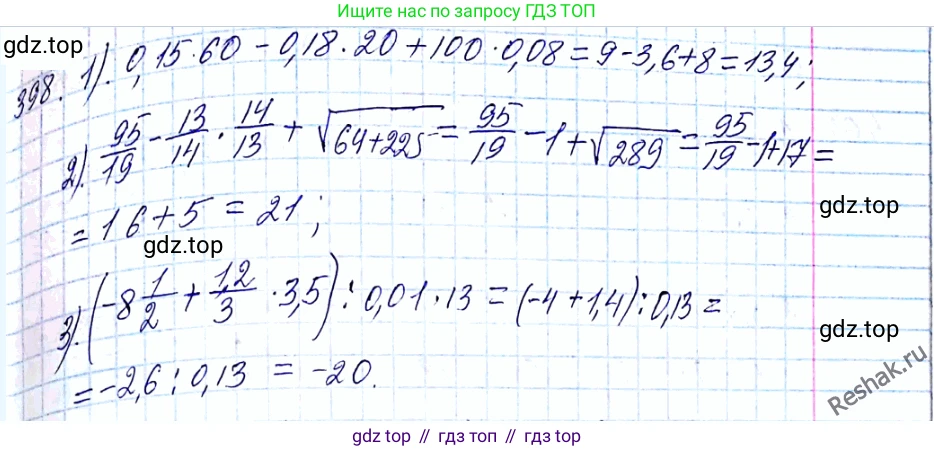 Ищите нас по запросу ГДЗ ТОП
gdz.top
398. 1). 0,15·60 - 0,18·20 + 100·0,08 = 9 - 3,6 + 8 = 13,4;
2). 95/19 - 13/14 · 14/13 + √(64+225) = 95/19 - 1 + √289 = 95/19 - 1 + 17 =
= 16 + 5 = 21;
gdz.top
gdz.top
3). (-8 1/2 + 1,2/3 · 3,5) : 0,01·13 = (-4 + 1,4) : 0,13 =
gdz.top
= -2,6 : 0,13 = -20.
Reshak.ru
gdz top // гдз топ // gdz top